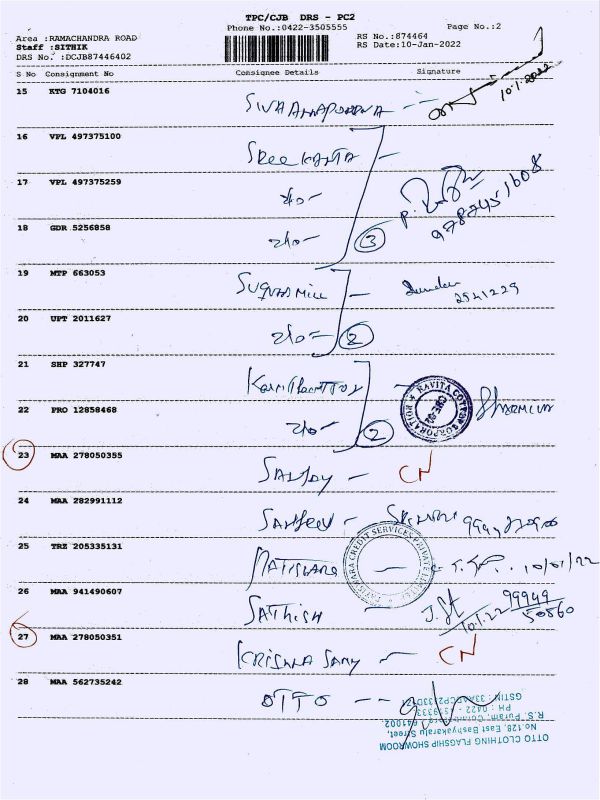 TPC/CJB DRS - PC2
Phone No.:0422-3505555
Page No.:2
Area :RAMACHANDRA ROAD
Staff :SITHIK
DRS No. :DCJB87446402
RS No.:874464
RS Date:10-Jan-2022
S No Consignment No Consignee Details Signature
15 KTG 7104016
10.1.2022
16 VPL 497375100 SREE KANTA
17 VPL 497375259 -do-
P.
9787451608
18 GDR 5256858 -do- 3
19 MTP 663053
2541229
20 UPT 2011627 -do- 2
21 SHP 327747
KAVITA COTTON CORPORATION
22 PRO 12858468 -do- 2
23 MAA 278050355 SANJAY - CN
24 MAA 282991112 SANJEEV -
25 TRZ 205335131 MATISHARA - 10/01/22
CREDIT SERVICES PRIVATE LIMITED
26 MAA 941490607 SATHISH
10.1.22 99949
50560
27 MAA 278050351 KRISHNA SAMY - CN
28 MAA 562735242 OTTO --
OTTO CLOTHING FLAGSHIP SHOWROOM
No.128, East Bashyakaralu Street,
R.S. Puram, Coimbatore - 641002.